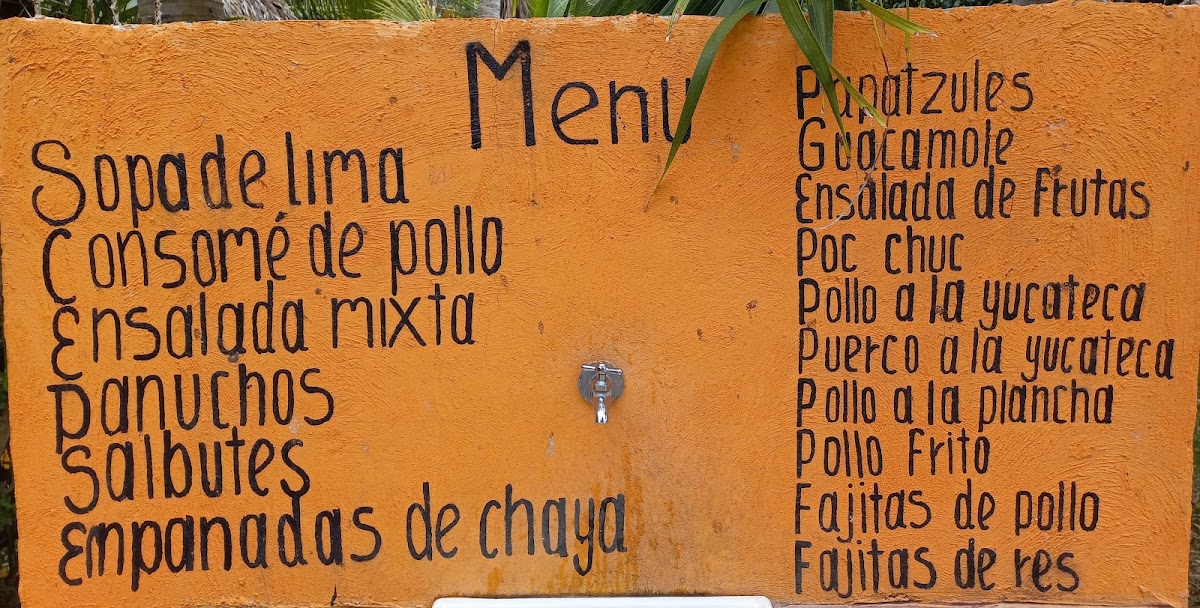 Menu
Sopa de lima
Consomé de pollo
Ensalada mixta
Panuchos
Salbutes
Empanadas de chaya
Papatzules
Guacamole
Ensalada de Frutas
Poc chuc
Pollo a la yucateca
Puerco a la yucateca
Pollo a la plancha
Pollo Frito
Fajitas de pollo
Fajitas de res